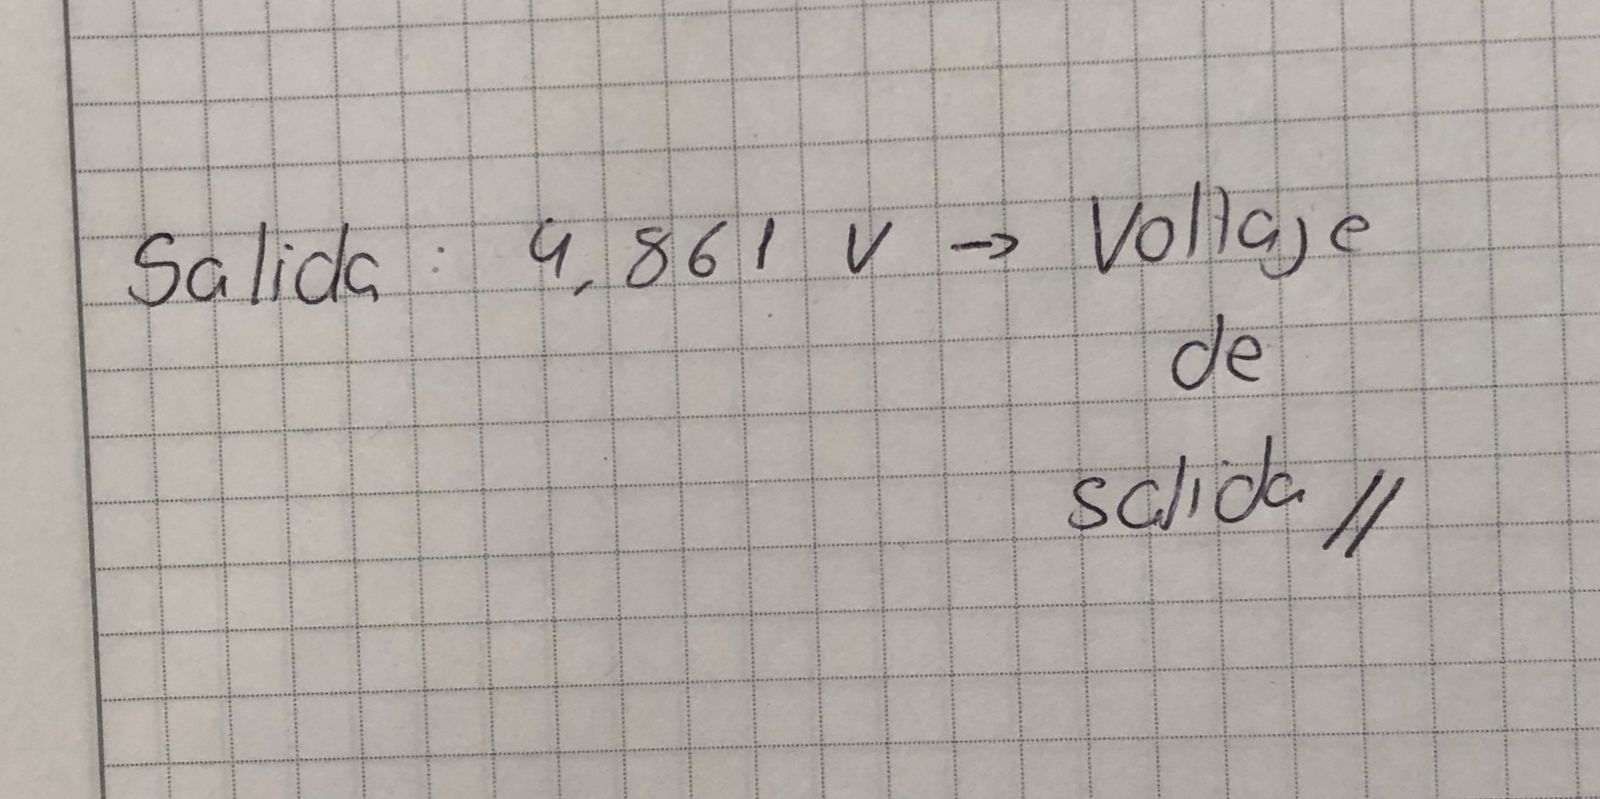 Salida : 4,861 V → Voltaje
de
salida //